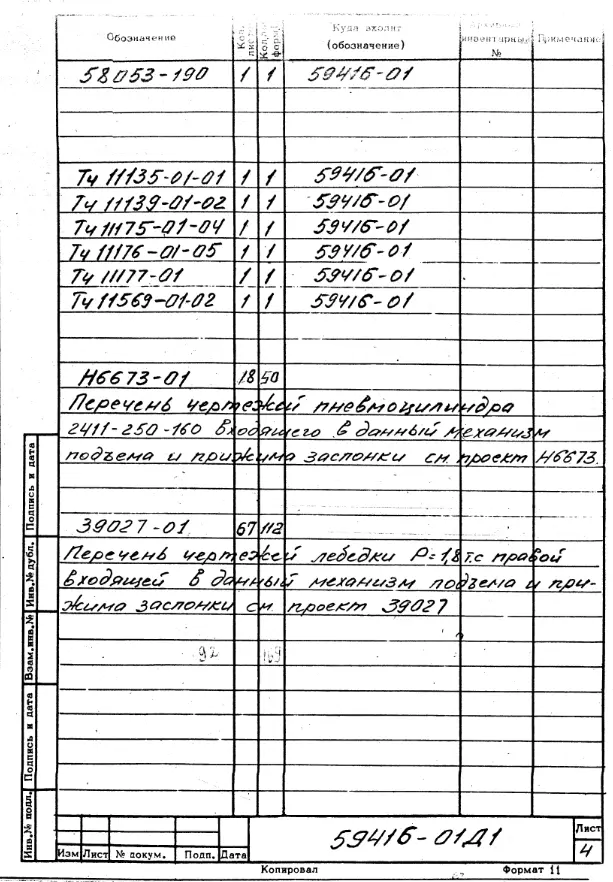 Обозначение Кол. лист. Кол. форм. Куда входит (обозначение) инвентарный № Примечание
58053-190 1 1 59416-01
Тч 11135-01-01 1 1 59416-01
Тч 11139-01-02 1 1 59416-01
Тч 11175-01-04 1 1 59416-01
Тч 11176-01-05 1 1 59416-01
Тч 11177-01 1 1 59416-01
Тч 11569-01-02 1 1 59416-01
Н6673-01 18 50
Перечень чертежей пневмоцилиндра
2411-250-160 входящего в данный механизм
подъема и прижима заслонки см. проект Н6673.
39027-01 67 112
Перечень чертежей лебедки Р=1,8 т.с правой
входящей в данный механизм подъема и при-
жима заслонки см. проект 39027
92 169
Подпись и дата
Инв.№ дубл.
Взам.инв.№
Подпись и дата
Инв.№ подл.
59416-01Д1
Лист
4
Изм Лист № докум. Подп. Дата
Копировал Формат 11